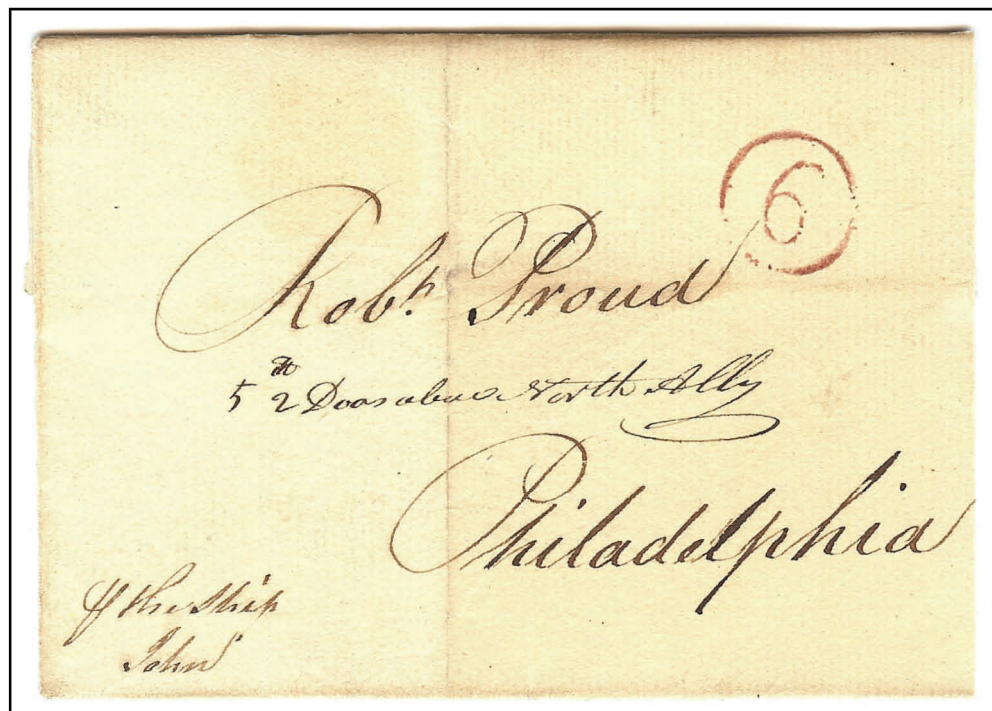 6
Robt. Proud
5th 2 Doors above North Ally
Philadelphia
the Ship
John